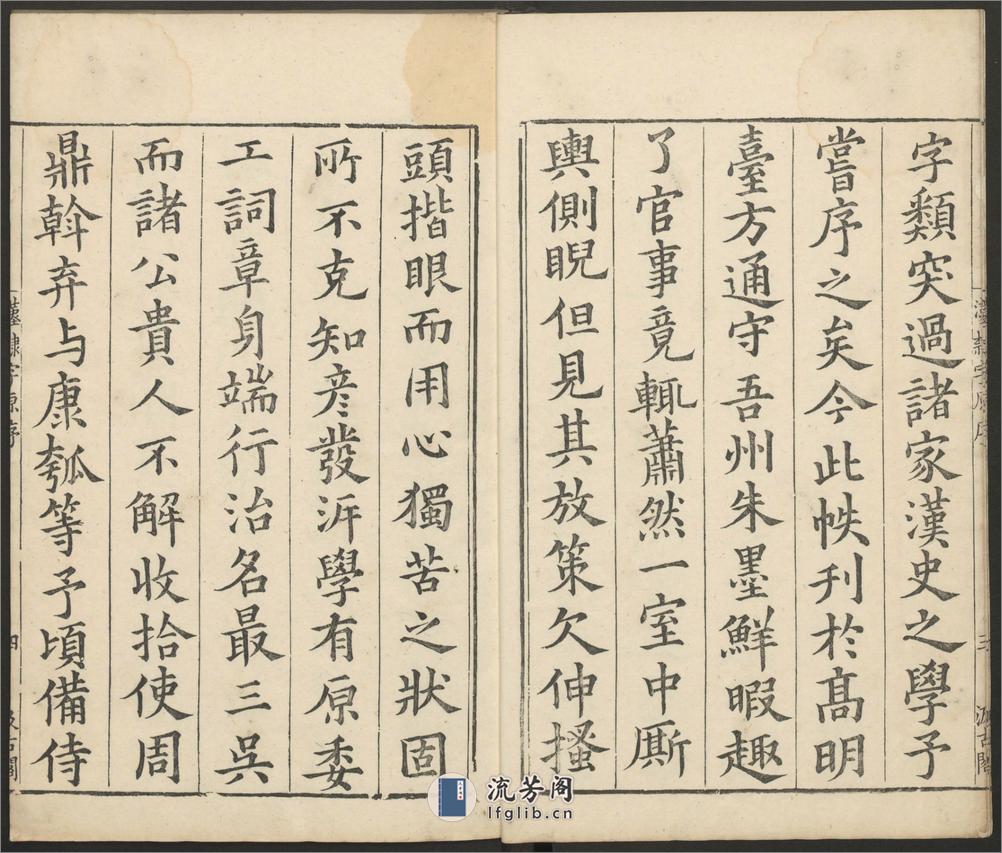 字類突過諸家漢史之學予
嘗序之矣今此帙刊於髙明
臺方通守吾州朱墨鮮暇趣
了官事竟輒蕭然一室中厮
輿側睨但見其放策欠伸搔
頭揩眼而用心獨苦之狀固
所不克知彦發泝學有原委
工詞章身端行治名最三吳
而諸公貴人不解收拾使周
鼎斡弃与康瓠等予頃備侍
漢隸字原序
四
汲古閣
流芳阁
lfglib.cn